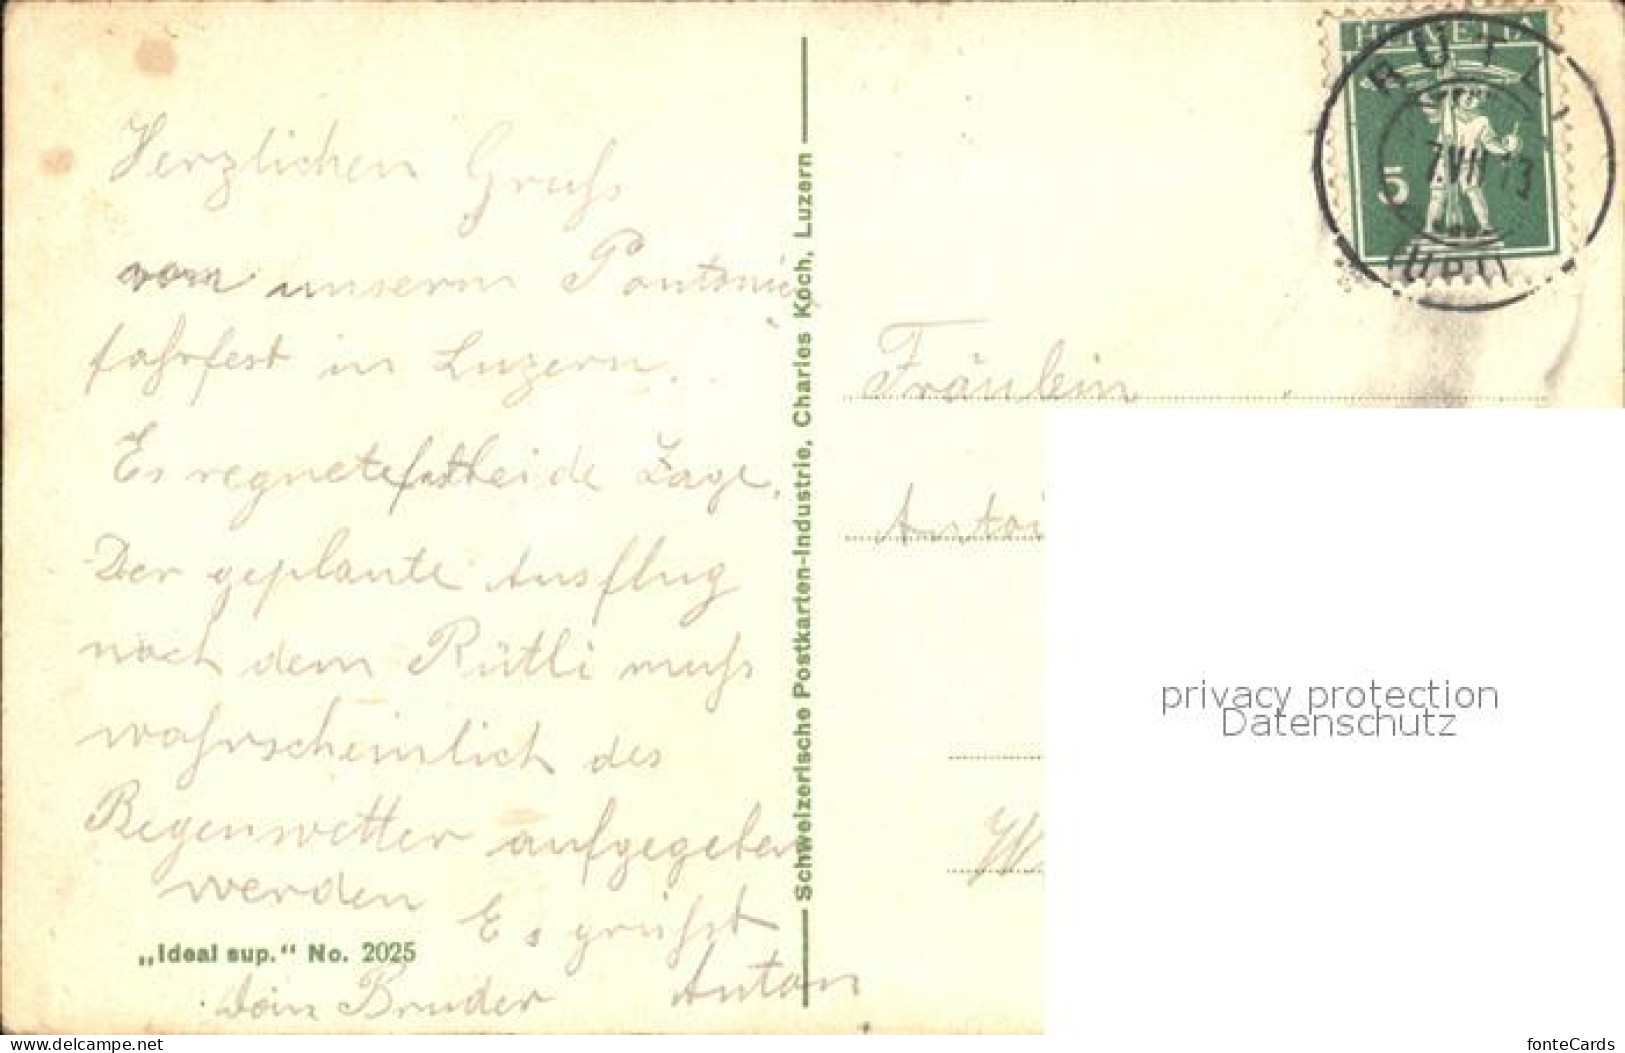 Herzlichen Gruss
vom unserm Pontonier
fahrfest in Luzern.
Es regnete fast beide Tage.
Der geplante Ausflug
nach dem Rütli muss
wahrscheinlich des
Regenwetter aufgegeben
werden Es grüsst
„Ideal sup.“ No. 2025
Dein Bruder Anton
Schweizerische Postkarten-Industrie, Charles Koch, Luzern
HELVETIA
5
RÜTLI
7.VII 13
(URI)
Fräulein
privacy protection
Datenschutz
www.delcampe.net
fonteCards